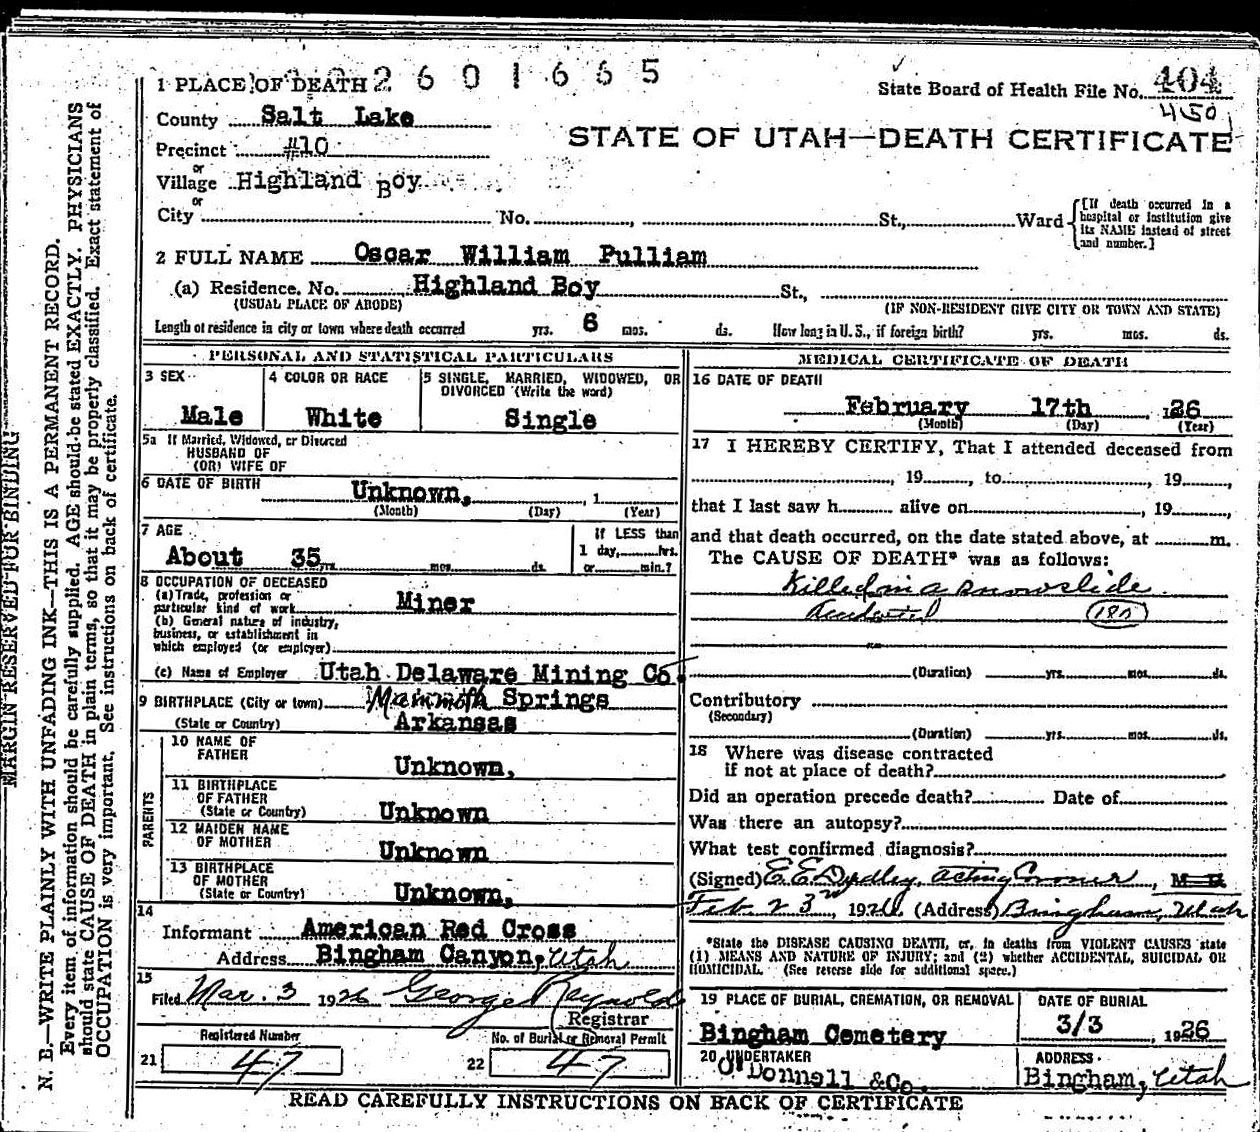 2601665
1 PLACE OF DEATH
State Board of Health File No. 404
450
County Salt Lake
STATE OF UTAH—DEATH CERTIFICATE
Precinct #10
or
Village Highland Boy
or
City No. , St., Ward
[If death occurred in a hospital or institution give its NAME instead of street and number.]
2 FULL NAME Oscar William Pulliam
(a) Residence. No. Highland Boy St.,
(USUAL PLACE OF ABODE) (IF NON-RESIDENT GIVE CITY OR TOWN AND STATE)
Length of residence in city or town where death occurred yrs. 6 mos. ds. How long in U. S., if foreign birth? yrs. mos. ds.
PERSONAL AND STATISTICAL PARTICULARS
3 SEX
Male
4 COLOR OR RACE
White
5 SINGLE, MARRIED, WIDOWED, OR
DIVORCED (Write the word)
Single
5a If Married, Widowed, or Divorced
HUSBAND OF
(OR) WIFE OF
6 DATE OF BIRTH Unknown, , 1
(Month) (Day) (Year)
7 AGE
About 35 yrs. mos. ds.
If LESS than
1 day, hrs.
or min.?
8 OCCUPATION OF DECEASED
(a) Trade, profession or
particular kind of work Miner
(b) General nature of industry,
business, or establishment in
which employed (or employer)
(c) Name of Employer Utah Delaware Mining Co.
9 BIRTHPLACE (City or town) Mammoth Springs
(State or Country) Arkansas
PARENTS
10 NAME OF
FATHER Unknown,
11 BIRTHPLACE
OF FATHER
(State or Country) Unknown
12 MAIDEN NAME
OF MOTHER Unknown
13 BIRTHPLACE
OF MOTHER
(State or Country) Unknown,
14
Informant American Red Cross
Address Bingham Canyon, Utah
15
Filed Mar. 3 1926 George Reynolds
Registrar
Registered Number
21 47
No. of Burial or Removal Permit
22 47
MEDICAL CERTIFICATE OF DEATH
16 DATE OF DEATH
February 17th , 1926
(Month) (Day) (Year)
17 I HEREBY CERTIFY, That I attended deceased from
, 19 , to , 19 ,
that I last saw h alive on , 19 ,
and that death occurred, on the date stated above, at m.
The CAUSE OF DEATH* was as follows:
Killed in a snowslide
Accidental
(Duration) yrs. mos. ds.
Contributory
(Secondary)
(Duration) yrs. mos. ds.
18 Where was disease contracted
if not at place of death?
Did an operation precede death? Date of
Was there an autopsy?
What test confirmed diagnosis?
(Signed) E. E. Dudley, Acting Coroner , M D
Feb. 23rd , 1926. (Address) Bingham, Utah
*State the DISEASE CAUSING DEATH, or, in deaths from VIOLENT CAUSES state
(1) MEANS AND NATURE OF INJURY; and (2) whether ACCIDENTAL, SUICIDAL OR
HOMICIDAL. (See reverse side for additional space.)
19 PLACE OF BURIAL, CREMATION, OR REMOVAL
Bingham Cemetery
DATE OF BURIAL
3/3 , 1926
20 UNDERTAKER
O'Donnell & Co.
ADDRESS
Bingham, Utah
READ CAREFULLY INSTRUCTIONS ON BACK OF CERTIFICATE
MARGIN RESERVED FOR BINDING
N. B.—WRITE PLAINLY WITH UNFADING INK—THIS IS A PERMANENT RECORD.
Every item of information should be carefully supplied. AGE should be stated EXACTLY. PHYSICIANS
should state CAUSE OF DEATH in plain terms, so that it may be properly classified. Exact statement of
OCCUPATION is very important. See instructions on back of certificate.